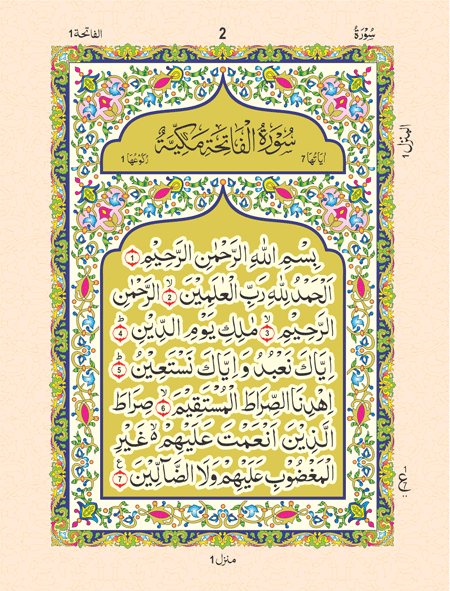 سُوْرَةُ 2 الفاتحة1
سُوْرَةُ الْفَاتِحَةِ مَكِّيَّةٌ
اٰيَاتُهَا 7 رُكُوْعُهَا 1
المنزل 1
بِسْمِ اللّٰهِ الرَّحْمٰنِ الرَّحِيْمِ 1
اَلْحَمْدُ لِلّٰهِ رَبِّ الْعٰلَمِيْنَ ۙ 2 الرَّحْمٰنِ
الرَّحِيْمِ ۙ 3 مٰلِكِ يَوْمِ الدِّيْنِ ؕ 4
اِيَّاكَ نَعْبُدُ وَ اِيَّاكَ نَسْتَعِيْنُ ؕ 5
اِهْدِنَا الصِّرَاطَ الْمُسْتَقِيْمَ ۙ 6 صِرَاطَ
الَّذِيْنَ اَنْعَمْتَ عَلَيْهِمْ ۙ۬ غَيْرِ
الْمَغْضُوْبِ عَلَيْهِمْ وَلَا الضَّآلِّيْنَ ع 7
منزل 1